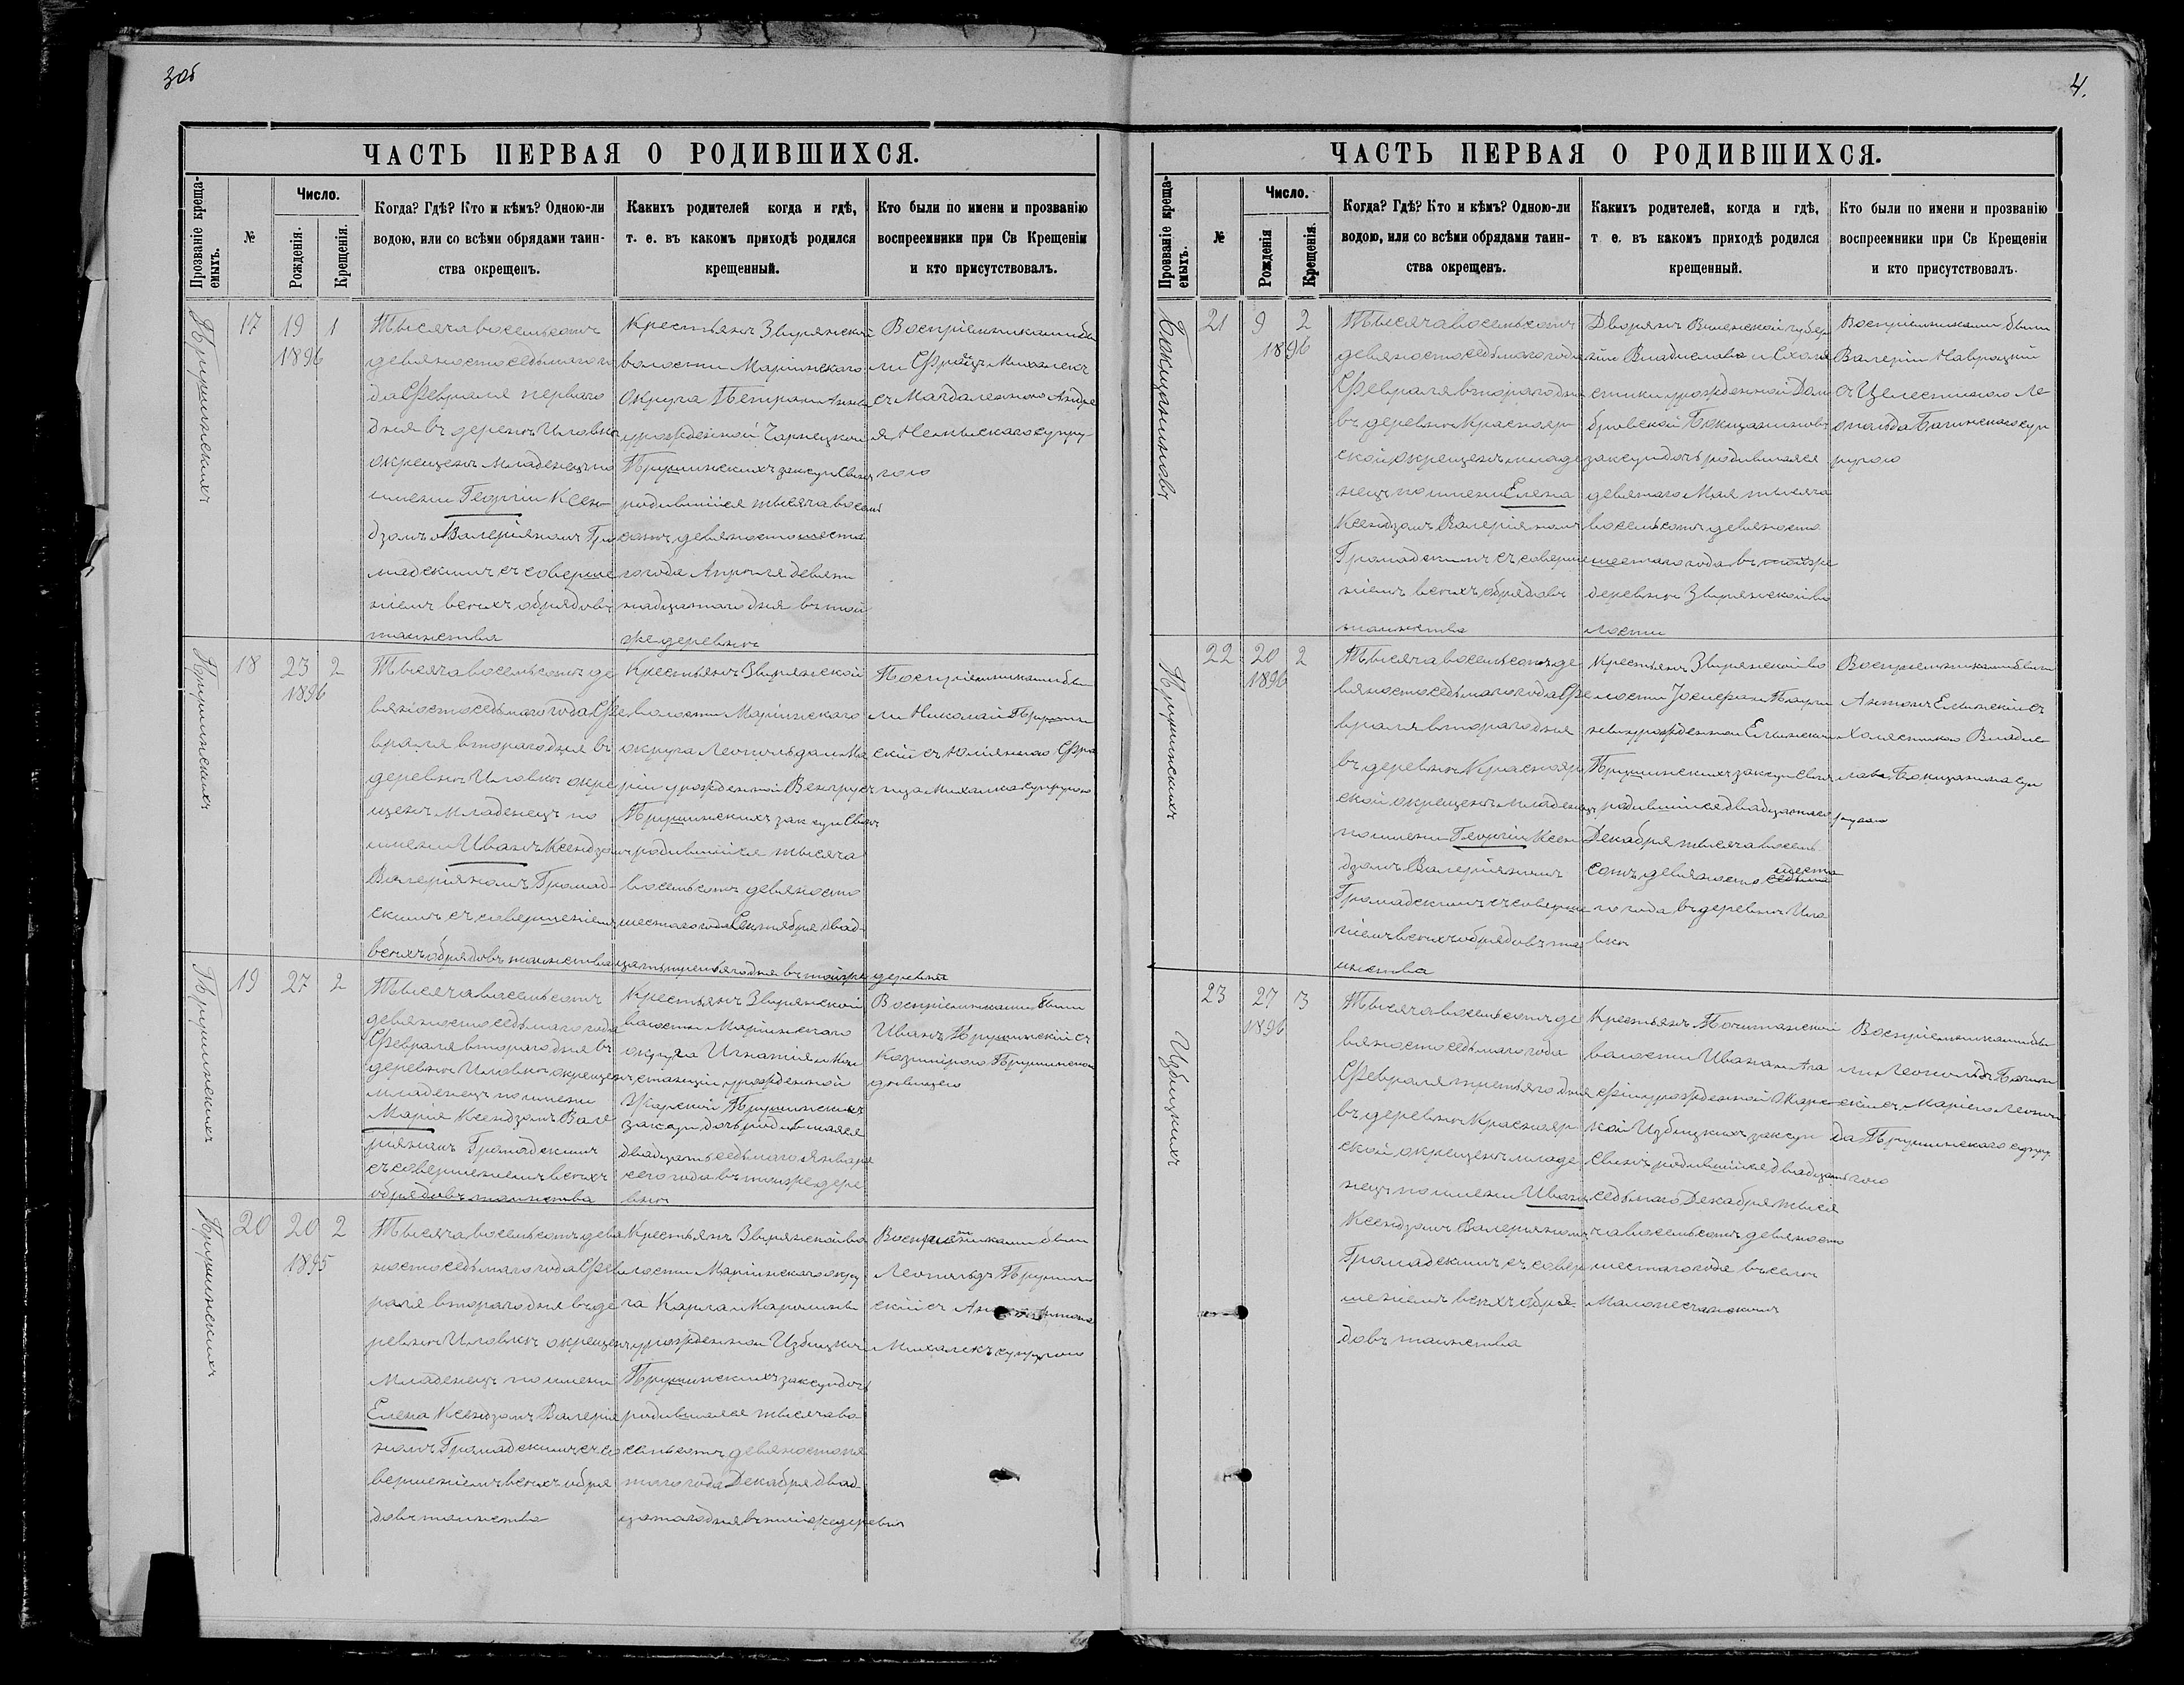 3об
ЧАСТЬ ПЕРВАЯ О РОДИВШИХСЯ.
Прозваніе креща-
емыхъ.
№
Число.
Рожденія.
Крещенія.
Когда? Гдѣ? Кто и кѣмъ? Одною-ли
водою, или со всѣми обрядами таин-
ства окрещенъ.
Какихъ родителей когда и гдѣ,
т. е. въ какомъ приходѣ родился
крещенный.
Кто были по имени и прозванію
воспреемники при Св Крещеніи
и кто присутствовалъ.
Прушинскихъ
17
19
1896
1
Тысяча восемьсотъ
девяносто седьмого го
да Февраля перваго
дня въ деревнѣ Иловкѣ
окрещенъ младенецъ по
имени Георгій Ксен-
дзомъ Валеріяномъ Гро
мадскимъ съ соверше
ніемъ всѣхъ обрядовъ
таинства
Крестьянъ Зырянской
волости Маріинскаго
Округа Петра и Анны
урожденной Чарнецкой
Прушинскихъ зак сун Сынъ
родившійся тысяча восемь
сотъ девяносто шеста
го года Апрѣля девят
надцатаго дня въ той
же деревнѣ
Воспріемниками бы
ли Францъ Михалекъ
съ Магдаленою Андре
я супру
гою
Прушинскихъ
18
23
1896
2
Тысяча восемьсотъ де
вяносто седьмаго года Фе
враля втораго дня въ
деревнѣ Иловкѣ окре
щенъ младенецъ по
имени Иванъ Ксендзо
Валеріяномъ Громад-
скимъ съ совершеніемъ
всѣхъ обрядовъ таинства
Крестьянъ Зырянской
волости Маріинскаго
округа Леопольда и Ма
ріи урожденной Венгрукъ
Прушинскихъ зак сун Сынъ
родившійся тысяча
восемьсотъ девяносто
шестого года Сентября двад-
цать третьяго дня въ той же деревнѣ
Воспріемниками бы
ли Николай Прушин
скій съ Юліянною Фра
нца Михалка супругою
Прушинскихъ
19
27
2
Тысяча восемьсотъ
девяносто седьмого года
Февраля втораго дня въ
деревнѣ Иловкѣ окрещенъ
младенецъ по имени
Марія Ксендзомъ Вале
ріяномъ Громадскимъ
съ совершеніемъ всѣхъ
обрядовъ таинства
Крестьянъ Зырянской
волости Маріинскаго
округа Игнатія и Кон
станціи урожденной
Жарской Прушинскихъ
зак сун дочь родившаяся
двадцать седьмаго Января
сего года въ той же дере
внѣ
Воспріемниками были
Иванъ Прушинскій съ
Казимірою Прушинскою
дѣвицею
Прушинскихъ
20
20
1895
2
Тысяча восемьсотъ девя
носто седьмаго года Фев
раля втораго дня въ де
ревнѣ Иловкѣ окрещенъ
младенецъ по имени
Елена Ксендзомъ Валерія
номъ Громадскимъ съ со
вершеніемъ всѣхъ обря
довъ таинства
Крестьянъ Зырянской во
лости Маріинскаго окру
га Карла и Каролины
урожденной Избицкой
Прушинскихъ зак сун дочь
родившаяся тысяча во
семьсотъ девяносто пя
таго года Декабря двад-
цатаго дня въ той же деревнѣ
Воспріемниками были
Леопольдъ Прушин
скій съ Антона
Михалекъ супругою
4.
ЧАСТЬ ПЕРВАЯ О РОДИВШИХСЯ.
Прозваніе креща-
емыхъ.
№
Число.
Рожденія
Крещенія.
Когда? Гдѣ? Кто и кѣмъ? Одною-ли
водою, или со всѣми обрядами таин-
ства окрещенъ.
Какихъ родителей, когда и гдѣ,
т е. въ какомъ приходѣ родился
крещенный.
Кто были по имени и прозванію
воспреемники при Св Крещеніи
и кто присутствовалъ.
Бокщаниновъ
21
9
1896
2
Тысяча восемьсотъ
девяносто седьмаго года
Февраля втораго дня
въ деревнѣ Краснояр
ской окрещенъ младе
нецъ по имени Елена
Ксендзомъ Валеріяномъ
Громадскимъ съ соверше
ніемъ всѣхъ обрядовъ
таинства
Дворянъ Виленской губер
ніи Владислава и Схола
стики урожденной Дом
бровской Бокщаниновъ
зак сун дочь родившаяся
девятаго Мая тысяча
восемьсотъ девяносто
шестаго года въ той же
деревнѣ Зырянской во
лости
Воспріемниками были
Валерій Навроцкій
съ Целестиною Ле
опольда Багинскаго суп
ругою
Прушинскихъ
22
20
1896
2
Тысяча восемьсотъ де
вяносто седьмаго года Фе
враля втораго дня
въ деревнѣ Краснояр
ской окрещенъ младенецъ
по имени Георгій Ксен
дзомъ Валеріяномъ
Громадскимъ съ соверше
ніемъ всѣхъ обрядовъ та
инства
Крестьянъ Зырянской во
лости Іосифа и Паули
ны урожденной Елинской
Прушинскихъ зак сун Сынъ
родившійся двадцатаго
Декабря тысяча восемь
сотъ девяносто шеста
го года въ деревнѣ Ило
вкѣ
Воспріемниками были
Антонъ Елинскій съ
Холястикою Владис
лава Бокщанина суп
ругою
Избицкихъ
23
27
1896
3
Тысяча восемьсотъ де
вяносто седьмаго года
Февраля третьяго дня
въ деревнѣ Краснояр
ской окрещенъ младе
нецъ по имени Иванъ
Ксендзомъ Валеріяномъ
Громадскимъ съ совер
шеніемъ всѣхъ обря
довъ таинства
Крестьянъ Почитанской
волости Ивана и Ага
фіи урожденной Жарс
кой Избицкихъ зак сун
Сынъ родившійся двадцать
седьмаго Декабря тыся
ча восемьсотъ девяносто
шестаго года въ селѣ
Малопесчанскимъ
Воспріемниками бы
ли Леопольдъ Багин
скій съ Маріею Леополь
да Прушинскаго супру
гою